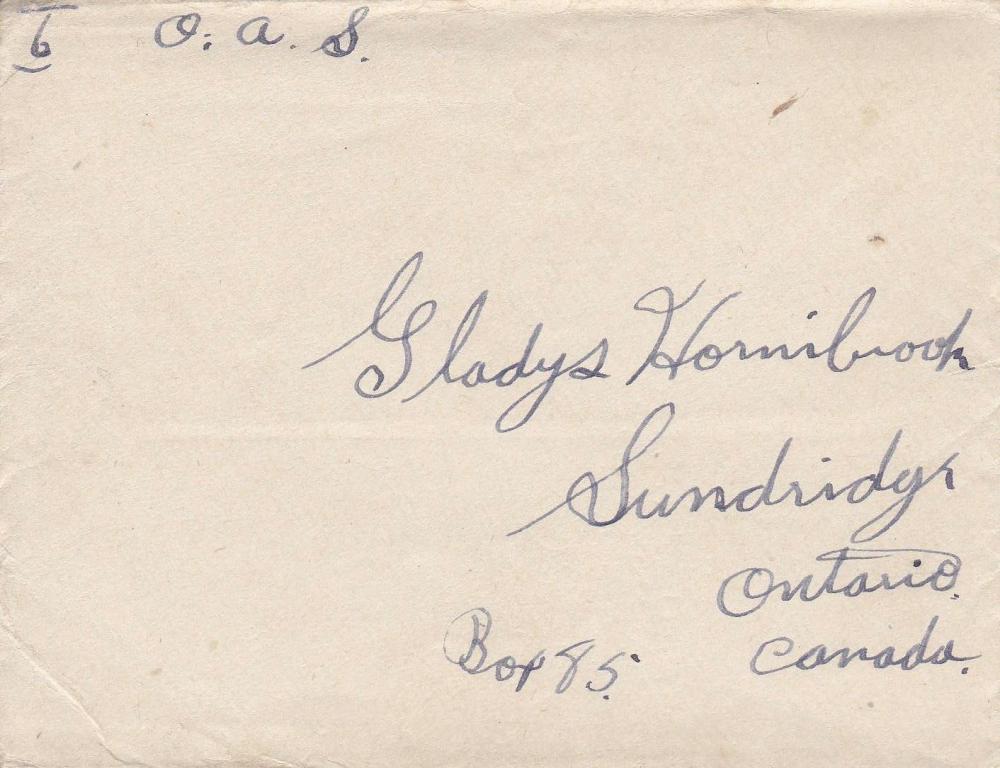 6 O. A. S.
Gladys Hornibrook
Sundridge
Ontario.
Box 85. Canada.